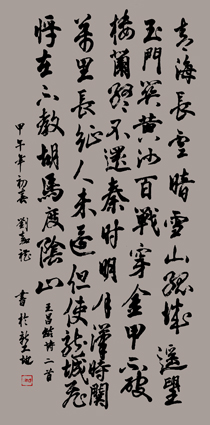 青海長雲暗雪山孤城遙望
玉門関黄沙百戰穿金甲不破
樓蘭終不還秦时明月漢時關
萬里長征人未還但使龍城飛
將在不教胡馬度陰山
王昌齡詩二首
甲午年初春 劉
書於